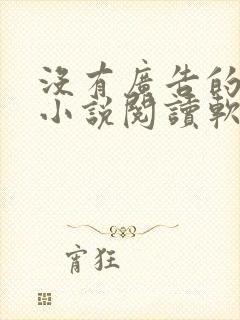 沒有廣告的
小說閱讀軟
宵狂